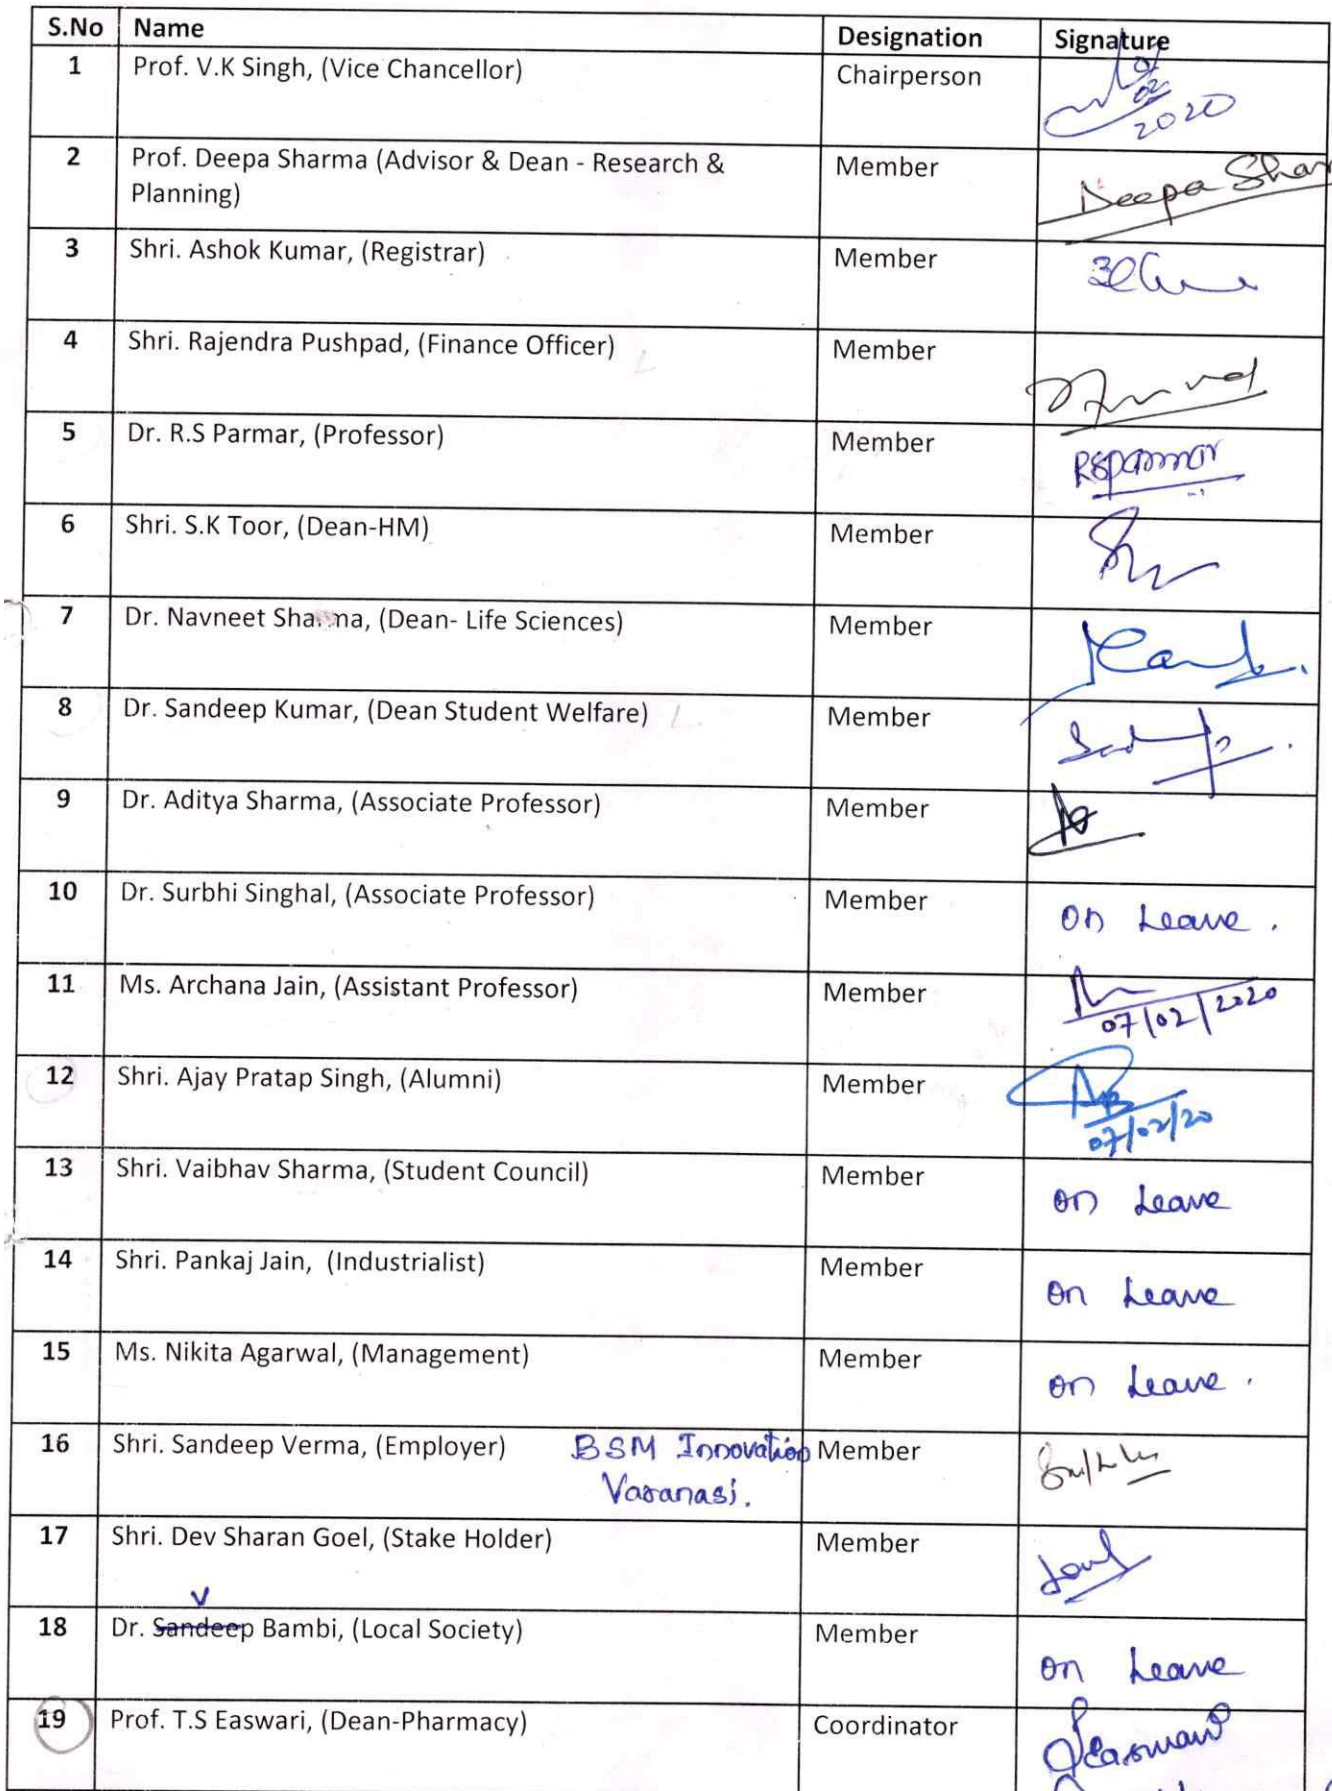 S.No Name Designation Signature
1 Prof. V.K Singh, (Vice Chancellor) Chairperson
2020
2 Prof. Deepa Sharma (Advisor & Dean - Research & Member Deepa Shar
Planning)
3 Shri. Ashok Kumar, (Registrar) Member
4 Shri. Rajendra Pushpad, (Finance Officer) Member
5 Dr. R.S Parmar, (Professor) Member RSparmar
6 Shri. S.K Toor, (Dean-HM) Member
7 Dr. Navneet Sharma, (Dean- Life Sciences) Member
8 Dr. Sandeep Kumar, (Dean Student Welfare) Member
9 Dr. Aditya Sharma, (Associate Professor) Member
10 Dr. Surbhi Singhal, (Associate Professor) Member on Leave.
11 Ms. Archana Jain, (Assistant Professor) Member
07/02/2020
12 Shri. Ajay Pratap Singh, (Alumni) Member
07/02/20
13 Shri. Vaibhav Sharma, (Student Council) Member on Leave
14 Shri. Pankaj Jain, (Industrialist) Member on Leave
15 Ms. Nikita Agarwal, (Management) Member on Leave.
16 Shri. Sandeep Verma, (Employer) BSM Innovation Member
Varanasi.
17 Shri. Dev Sharan Goel, (Stake Holder) Member
V
18 Dr. Sandeep Bambi, (Local Society) Member on Leave
19 Prof. T.S Easwari, (Dean-Pharmacy) Coordinator